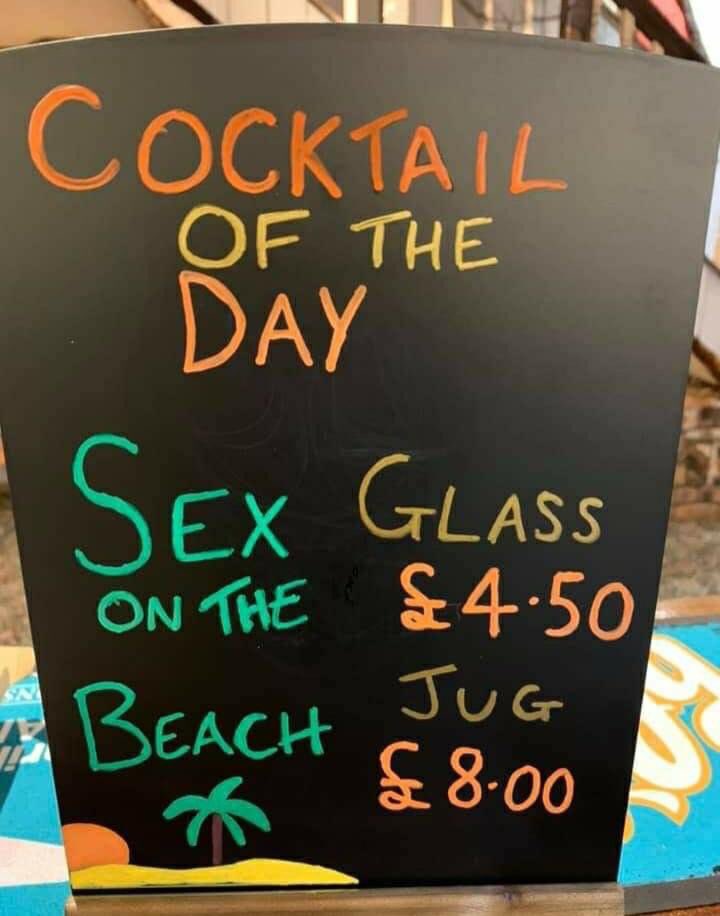 COCKTAIL
OF THE
DAY
SEX
ON THE
BEACH
GLASS
£4.50
JUG
£8.00